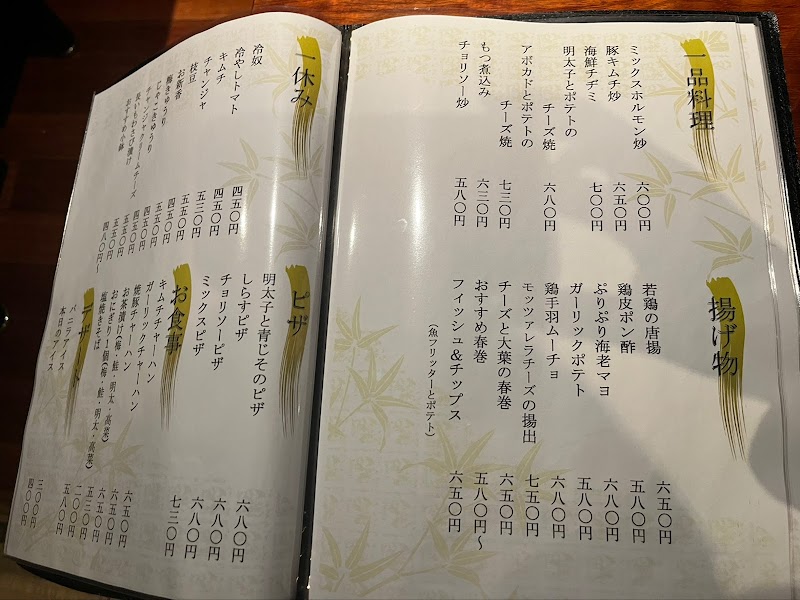 一品料理
ミックスホルモン炒 六〇〇円
豚キムチ炒 六五〇円
海鮮チヂミ 七〇〇円
明太子とポテトの
チーズ焼 六八〇円
アボカドとポテトの
チーズ焼 七三〇円
もつ煮込み 六三〇円
チョリソー炒 五八〇円
揚げ物
若鶏の唐揚 六五〇円
鶏皮ポン酢 五八〇円
ぷりぷり海老マヨ 六八〇円
ガーリックポテト 五八〇円
鶏手羽ムーチョ 六八〇円
モッツァレラチーズの揚出 七五〇円
チーズと大葉の春巻 六五〇円
おすすめ春巻 五八〇円〜
フィッシュ&チップス 六五〇円
(魚フリッターとポテト)
一休み
冷奴
冷やしトマト
キムチ
チャンジャ
枝豆
お新香
梅きゅうり
じゃこきゅうり
チャンジャクリームチーズ
わさび漬け
おすすめ小鉢
四五〇円
四五〇円
五三〇円
五五〇円
四五〇円
四五〇円
五五〇円
五五〇円
四八〇円〜
ピザ
明太子と青じそのピザ 六八〇円
しらすピザ 六八〇円
チョリソーピザ 六八〇円
ミックスピザ 七三〇円
お食事
キムチチャーハン 六五〇円
ガーリックチャーハン 六五〇円
焼豚チャーハン 六五〇円
お茶漬け(梅・鮭・明太・高菜) 五三〇円
おにぎり1個(梅・鮭・明太・高菜) 二〇〇円
塩焼きそば 五八〇円
デザート
バニラアイス 三〇〇円
本日のアイス 四〇〇円